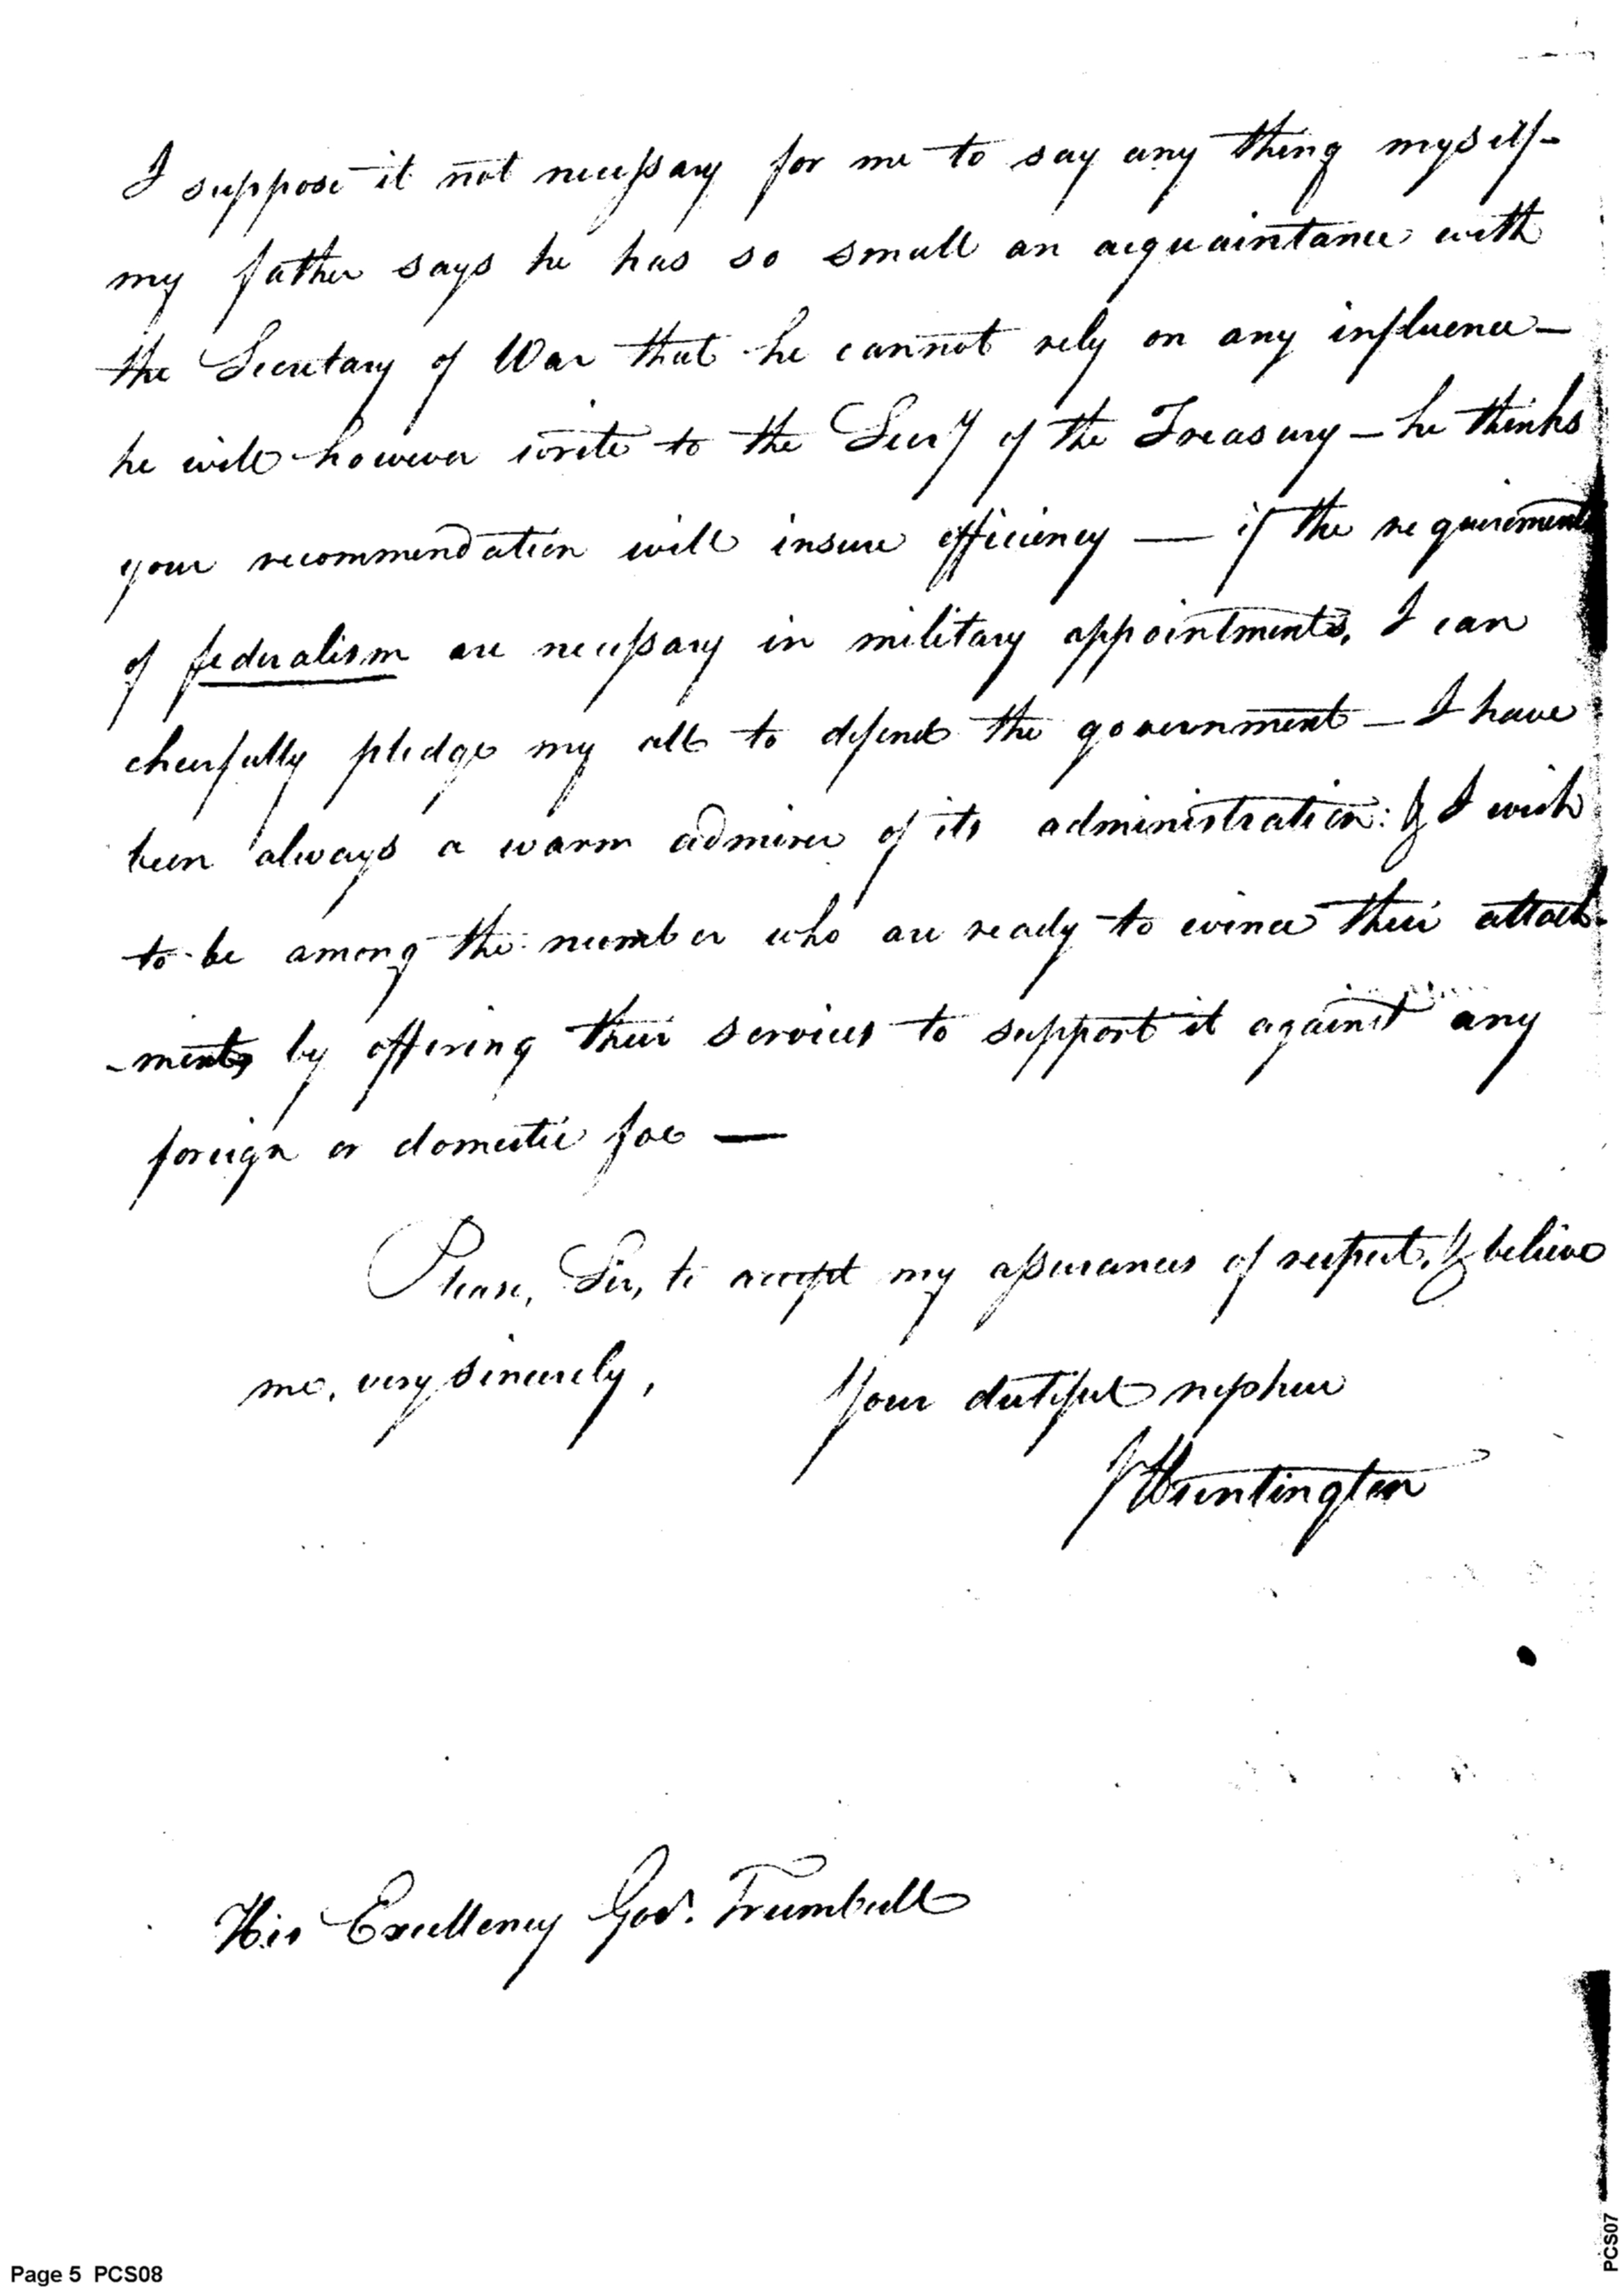 I suppose it not necessary for me to say any thing myself-
my father says he has so small an acquaintance with
the Secretary of War that he cannot rely on any influence—
he will however write to the Secry of the Treasury — he thinks
your recommendation will insure efficiency — if the requirements
of federalism are necessary in military appointments, I can
chearfully pledge my all to defend the government — I have
been always a warm admirer of its administration: & I wish
to be among the number who are ready to evince their attach-
-ments by offering their services to support it against any
foreign or domestic foe —
Please, Sir, to accept my assurances of respect, & believe
me, very sincerely, Your dutiful nephew
Huntington
His Excellency Gov. Trumbull
Page 5 PCS08
PCS07